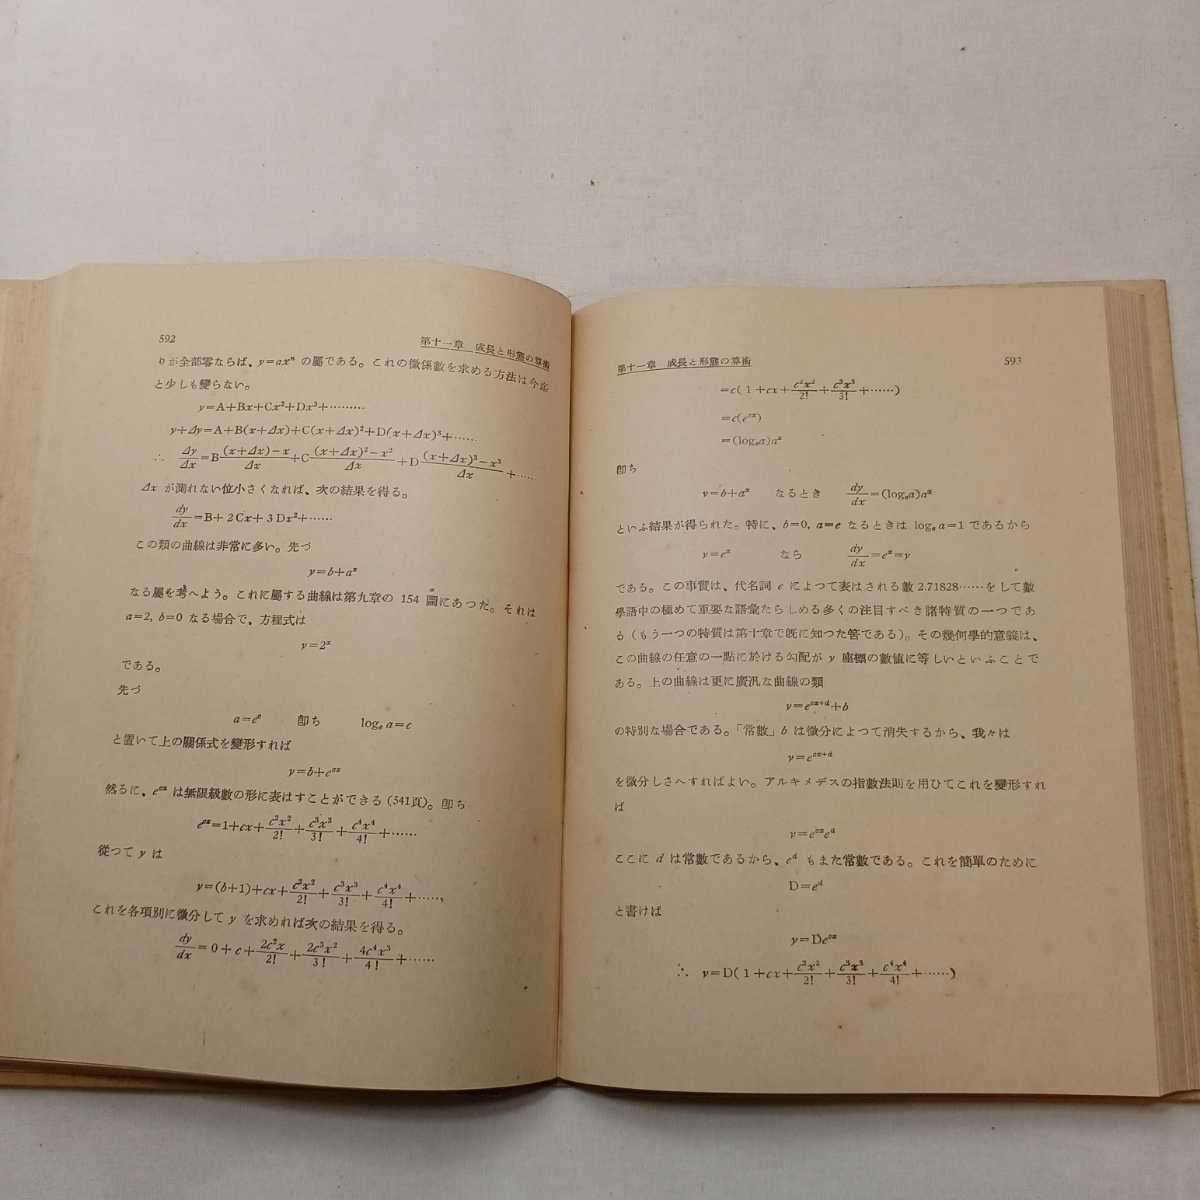 592
第十一章 成長と形態の算術
bが全部零ならば、y=axⁿ の屬である。これの微係數を求める方法は今迄
と少しも變らない。
y=A+Bx+Cx²+Dx³+………
y+Δy=A+B(x+Δx)+C(x+Δx)²+D(x+Δx)³+……
∴ Δy/Δx=B (x+Δx)−x/Δx +C (x+Δx)²−x²/Δx +D (x+Δx)³−x³/Δx +……
Δx が測れない位小さくなれば、次の結果を得る。
dy/dx=B+2Cx+3Dx²+……
この類の曲線は非常に多い。先づ
y=b+aˣ
なる屬を考へよう。これに屬する曲線は第九章の 154 圖にあつた。それは
a=2, b=0 なる場合で、方程式は
y=2ˣ
である。
先づ
a=eᶜ 卽ち logₑ a=c
と置いて上の關係式を變形すれば
y=b+eᶜˣ
然るに、eᶜˣ は無限級數の形に表はすことができる (541頁)。卽ち
eᶜˣ=1+cx+c²x²/2!+c³x³/3!+c⁴x⁴/4!+……
從つて y は
y=(b+1)+cx+c²x²/2!+c³x³/3!+c⁴x⁴/4!+……,
これを各項別に微分して y を求めれば次の結果を得る。
dy/dx=0+c+2c²x/2!+2c³x²/3!+4c⁴x³/4!+……
第十一章 成長と形態の算術
593
=c(1+cx+c²x²/2!+c³x³/3!+……)
=c(eᶜˣ)
=(logₑa)aˣ
卽ち
y=b+aˣ なるとき dy/dx=(logₑa)aˣ
といふ結果が得られた。特に、b=0, a=e なるときは logₑ a=1 であるから
y=eˣ なら dy/dx=eˣ=y
である。この事實は、代名詞 e によつて表はされる數 2.71828……をして數
學語中の極めて重要な語彙たらしめる多くの注目すべき諸特質の一つであ
る (もう一つの特質は第十章で既に知つた筈である)。その幾何學的意義は、
この曲線の任意の一點に於ける勾配が y 座標の數値に等しいといふことで
ある。上の曲線は更に廣汎な曲線の類
y=eᶜˣ⁺ᵈ+b
の特別な場合である。「常數」b は微分によつて消失するから、我々は
y=eᶜˣ⁺ᵈ
を微分しさへすればよい。アルキメデスの指數法則を用ひてこれを變形すれ
ば
y=eᶜˣeᵈ
ここに d は常數であるから、eᵈ もまた常數である。これを簡單のために
D=eᵈ
と書けば
y=Deᶜˣ
∴ y=D(1+cx+c²x²/2!+c³x³/3!+c⁴x⁴/4!+……)